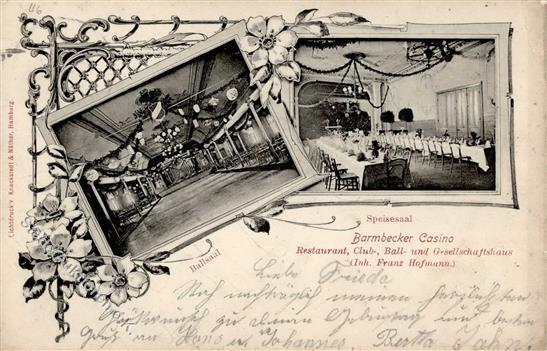 116
Lichtdruck v. Knackstedt & Näther, Hamburg.
Speisesaal
Ballsaal
Barmbecker Casino
Restaurant, Club-, Ball- und Gesellschaftshaus
(Inh. Franz Hofmann.)
Liebe Frieda
Noch nachträglich meinen herzlichsten
Glückwunsch zu deine Geburtstag und besten
Gruß an Hans u Johannes, Berta Jahn.